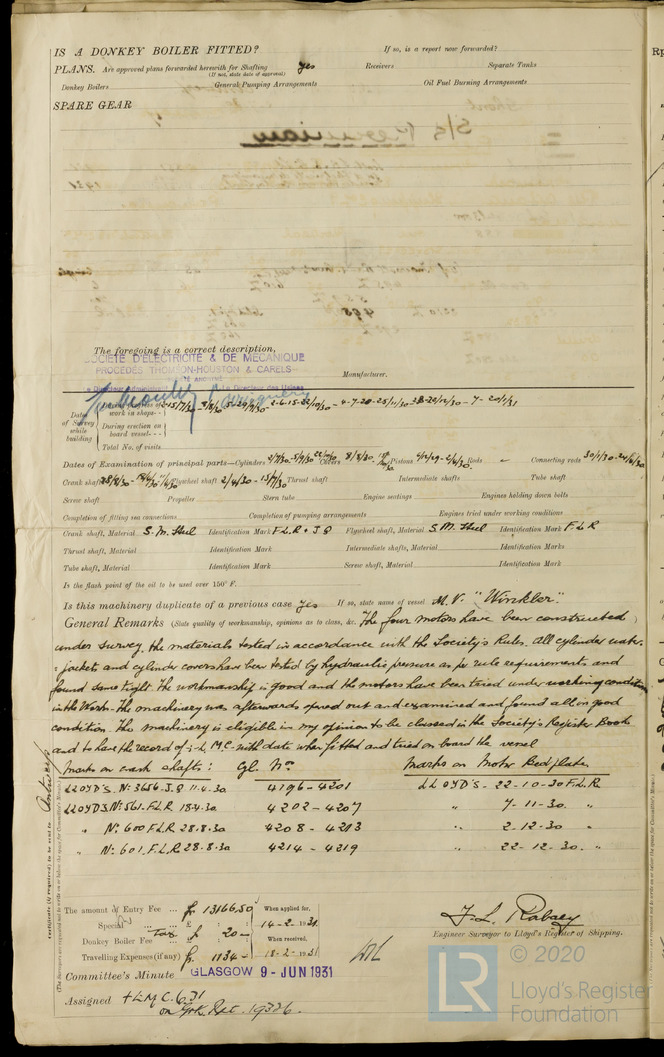 IS A DONKEY BOILER FITTED? If so, is a report now forwarded?
PLANS. Are approved plans forwarded herewith for Shafting yes Receivers Separate Tanks
(If not, state date of approval)
Donkey Boilers General Pumping Arrangements Oil Fuel Burning Arrangements
SPARE GEAR
The foregoing is a correct description,
SOCIÉTÉ D'ÉLECTRICITÉ & DE MÉCANIQUE
PROCÉDÉS THOMSON-HOUSTON & CARELS
Manufacturer.
Dates of Survey while building
work in shops--
During erection on board vessel---
Total No. of visits
Dates of Examination of principal parts—Cylinders 2/7/30-5/9/30 Covers 8/8/30 Pistons 4/12/29-2/6/30 Rods – Connecting rods 30/1/30-24/6/30
Crank shaft Flywheel shaft 2/4/30-15/7/30 Thrust shaft Intermediate shafts Tube shaft
Screw shaft Propeller Stern tube Engine seatings Engines holding down bolts
Completion of fitting sea connections Completion of pumping arrangements Engines tried under working conditions
Crank shaft, Material S.M. Steel Identification Mark F.L.R + J.G Flywheel shaft, Material S.M. Steel Identification Mark F.L.R
Thrust shaft, Material Identification Mark Intermediate shafts, Material Identification Marks
Tube shaft, Material Identification Mark Screw shaft, Material Identification Mark
Is the flash point of the oil to be used over 150° F.
Is this machinery duplicate of a previous case yes If so, state name of vessel M.V. "Winkler"
General Remarks (State quality of workmanship, opinions as to class, &c. The four motors have been constructed
under survey, the materials tested in accordance with the Society's Rules. All cylinder water-
jackets and cylinder covers have been tested by hydraulic pressure as per rule requirements and
found same tight. The workmanship is good and the motors have been tried under working condition
in the Works. The machinery was afterwards opened out and examined and found all in good
condition. The machinery is eligible in my opinion to be classed in the Society's Register Book
and to have the record of + L.M.C. with date when fitted and tried on board the vessel
Marks on crank shafts: Cyl. Nos Marks on Motor Bedplates
LLOYD'S. No 3656. J.G 11.4.30 4196-4201 LLOYD'S - 22-10-30 F.L.R
LLOYDS No 561. F.L.R 18.4.30 4202-4207 " 7-11-30. "
" No 600 F.L.R 28.8.30 4208-4213 " 2-12-30 "
" No 601. F.L.R 28.8.30 4214-4219 " 22-12-30. "
The amount of Entry Fee ... fr 13166.50 When applied for,
Special ... £ : 14-2-1931
Tax fr 20-
Donkey Boiler Fee ... £ When received,
Travelling Expenses (if any) fr. 1134- 18-2-1931
F. L. Rabaey
Engineer Surveyor to Lloyd's Register of Shipping.
Committee's Minute GLASGOW 9-JUN 1931
Assigned + L.M.C. 6.31
on Grk. Rpt. 19326.
Antwerp
© 2020
LR
Lloyd's Register
Foundation